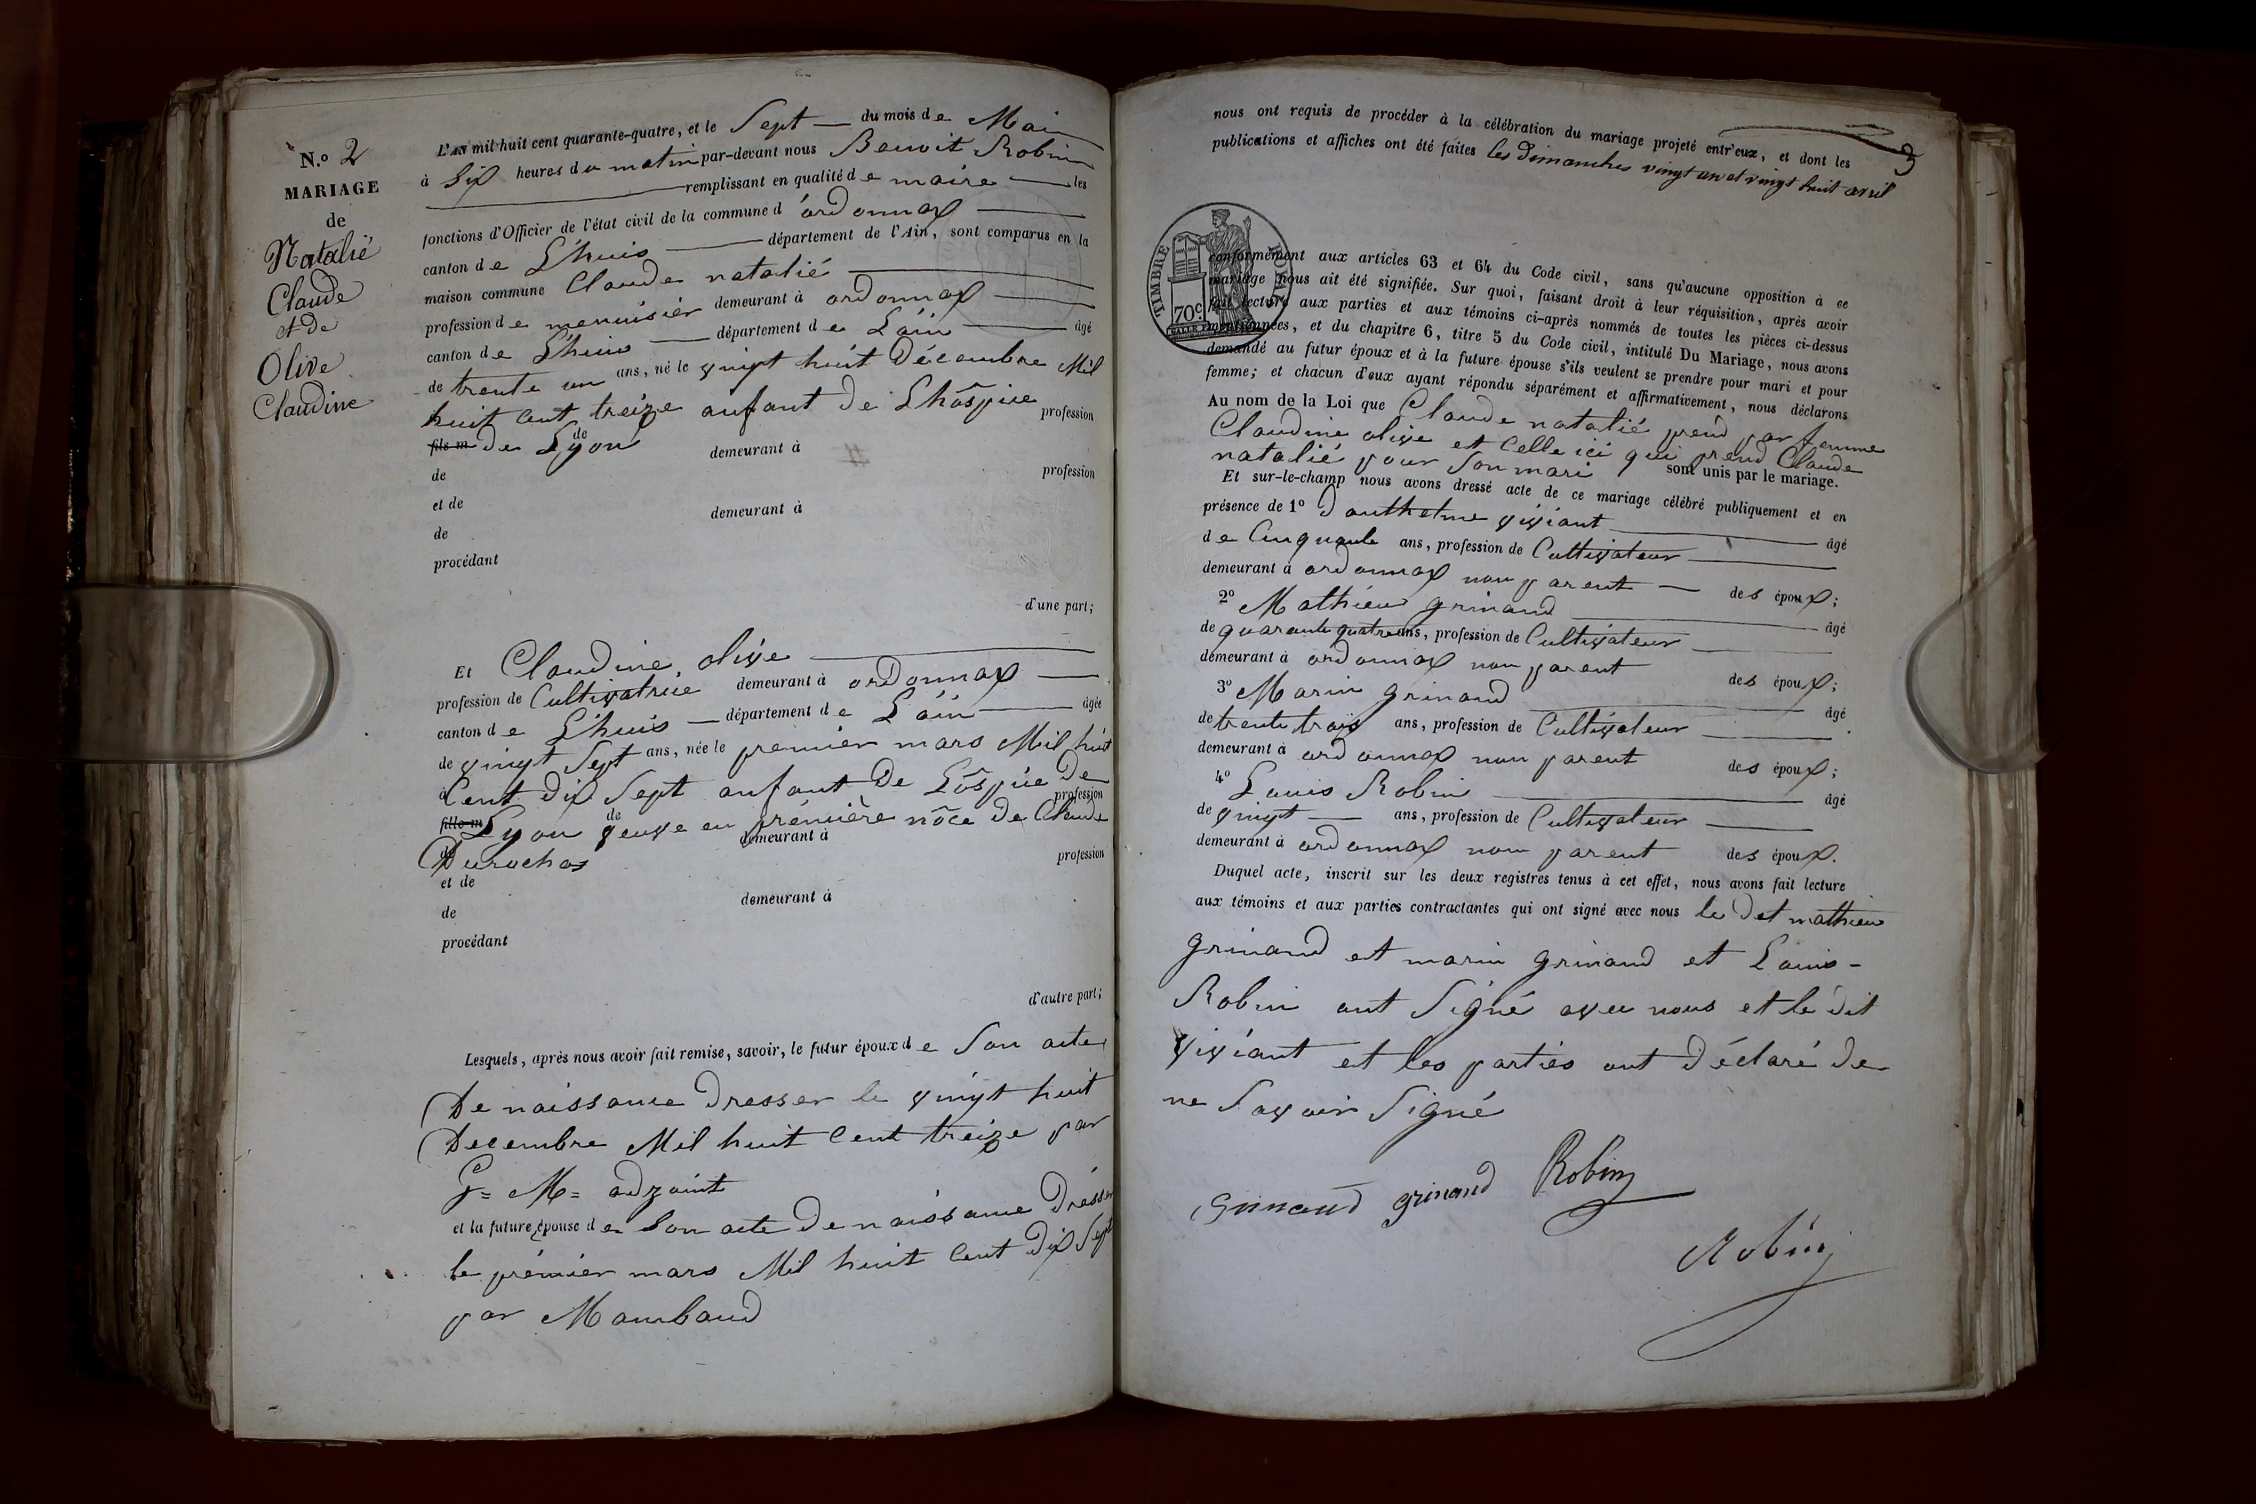 N.o 2
MARIAGE
de
Natalié
Claude
et de
Olive
Claudine
L'AN mil huit cent quarante-quatre, et le Sept du mois de Mai
à Six heures du matin par-devant nous Benoit Robin
remplissant en qualité de maire les
fonctions d'Officier de l'état civil de la commune d'ordonnax
canton de Lhuis département de l'Ain, sont comparus en la
maison commune Claude natalié
profession de menuisier demeurant à ordonnax
canton de Lhuis département de Láin âgé
de trente un ans, né le vingt huit Décembre Mil
huit cent treize anfant de Lhôspice profession
fils m de Lyon demeurant à
de
de profession
et de demeurant à
de
procédant
d'une part;
Et Claudine olive
profession de Cultivatrice demeurant à ordonnax
canton de Lhuis département de Láin âgée
de vingt Sept ans, née le premier mars Mil huit
à Cent dix Sept anfant de Lôspice de profession
fille m Lyon de veuve en première nôce de Claude
Durochas demeurant à
de profession
et de
de demeurant à
procédant
d'autre part;
Lesquels, après nous avoir fait remise, savoir, le futur époux de Son acte
De naissance Dresser le vingt huit
Décembre Mil huit Cent treize par
G= M= adzoint
et la future épouse de Son acte De naissance Dresser
le prémier mars Mil huit Cent dix Sept
par Mambaud
3
nous ont requis de procéder à la célébration du mariage projeté entr'eux, et dont les
publications et affiches ont été faites les Dimanches vingt un et vingt huit avril
TIMBRE ROYAL
70c.
conformément aux articles 63 et 64 du Code civil, sans qu'aucune opposition à ce
mariage nous ait été signifiée. Sur quoi, faisant droit à leur réquisition, après avoir
fait lecture aux parties et aux témoins ci-après nommés de toutes les pièces ci-dessus
mentionnées, et du chapitre 6, titre 5 du Code civil, intitulé Du Mariage, nous avons
demandé au futur époux et à la future épouse s'ils veulent se prendre pour mari et pour
femme; et chacun d'eux ayant répondu séparément et affirmativement, nous déclarons
Au nom de la Loi que Claude natalié prend par femme
Claudine olive et Celle ici qui prend Claude
natalié pour Son mari sont unis par le mariage.
Et sur-le-champ nous avons dressé acte de ce mariage célébré publiquement et en
présence de 1o d'anthelme viviant âgé
de Cinquante ans, profession de Cultivateur
demeurant à ordonnax non parent des époux;
2o Mathieu grinand âgé
de quarante quatre ans, profession de Cultivateur
demeurant à ordonnax non parent des époux;
3o Marin grinand âgé
de trente trois ans, profession de Cultivateur
demeurant à ordonnax non parent des époux;
4o Louis Robin âgé
de vingt ans, profession de Cultivateur
demeurant à ordonnax non parent des époux.
Duquel acte, inscrit sur les deux registres tenus à cet effet, nous avons fait lecture
aux témoins et aux parties contractantes qui ont signé avec nous le dit mathieu
grinand et marin grinand et Louis-
Robin ont Signé avec nous et le dit
viviant et les parties ont déclaré de
ne Savoir Signé
Grinand grinand Robin
Robin